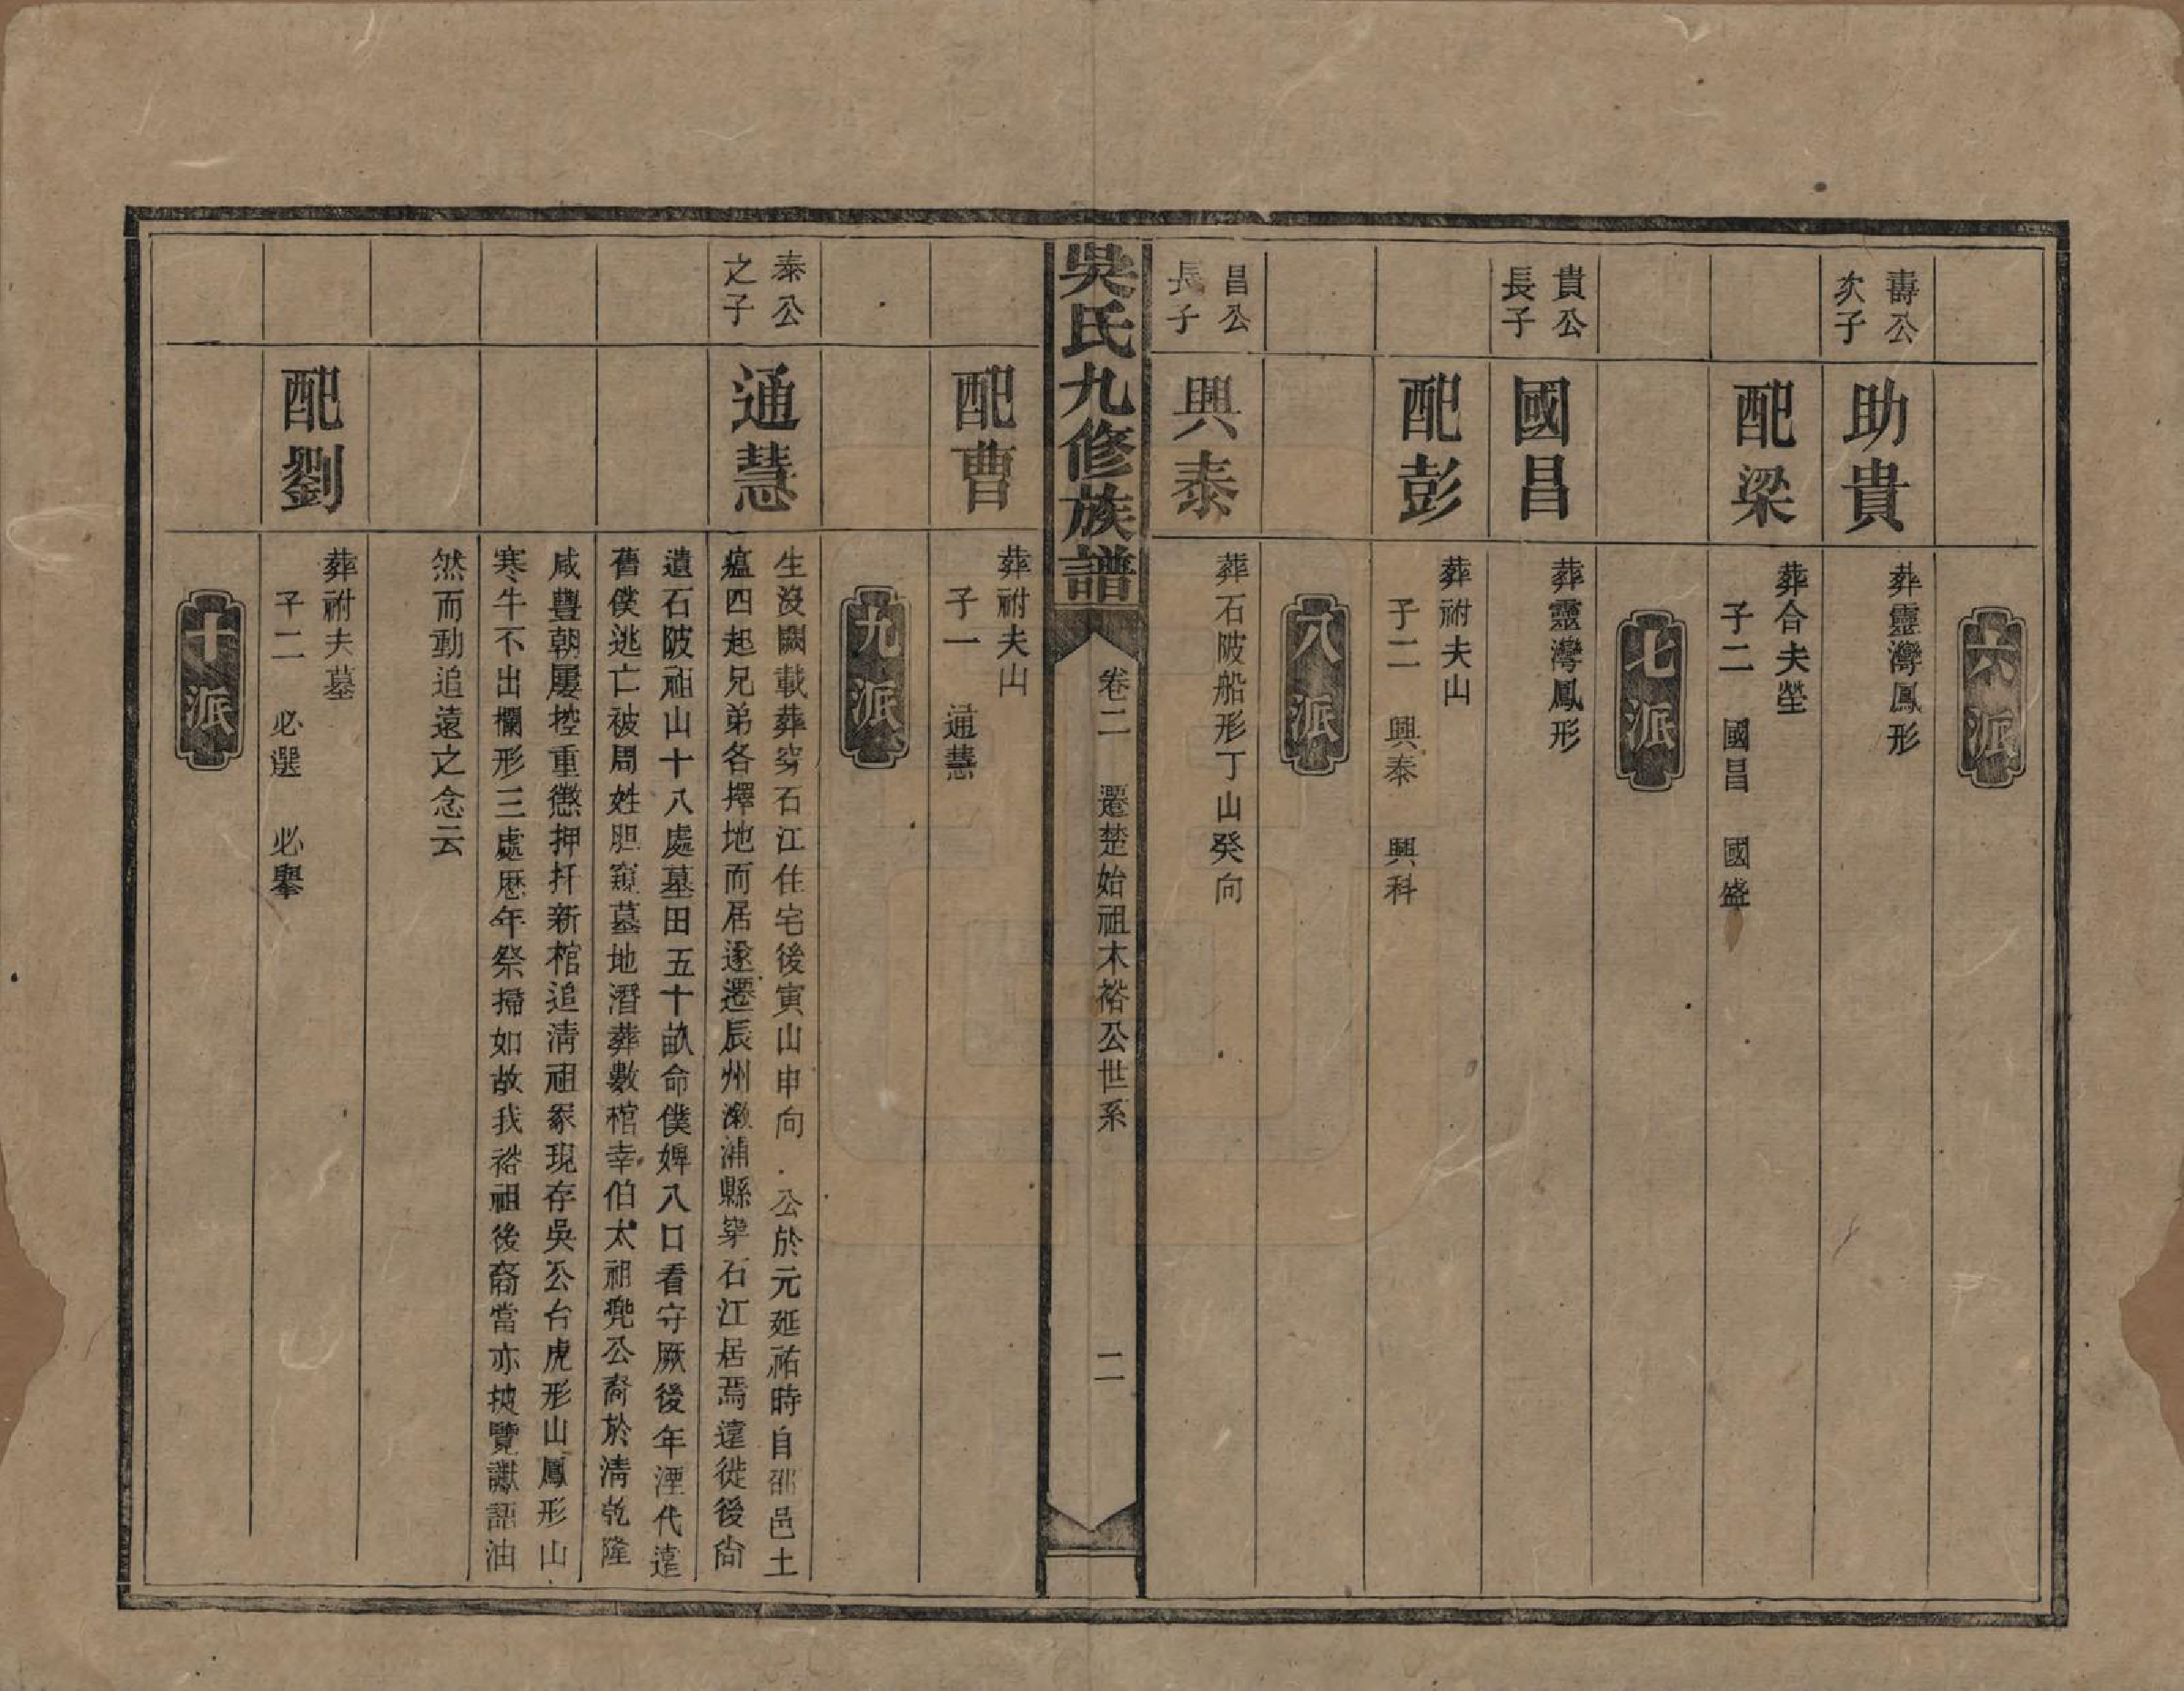 六派
壽公
次子
助貴
葬靈灣鳳形
配梁
葬合夫塋
子二 國昌 國盛
七派
貴公
長子
國昌
葬靈灣鳳形
配彭
葬祔夫山
子二 興泰 興科
八派
昌公
長子
興泰
葬石陂船形丁山癸向
吳氏九修族譜
卷二 遷楚始祖木裕公世系
二
配曹
葬祔夫山
子一 通慧
九派
泰公
之子
通慧
生沒闕載葬穿石江住宅後寅山申向.公於元延祐時自邵邑土
瘟四起兄弟各擇地而居遂遷辰州漵浦縣穿石江居焉遠徙後尙
遺石陂祖山十八處墓田五十畝命僕婢八口看守厥後年湮代遠
舊僕逃亡被周姓胆窺墓地潛葬數棺幸伯太祖兠公裔於淸乾隆
咸豐朝屢控重懲押扦新棺追淸祖冢現存吳公台虎形山鳳形山
寒牛不出欄形三處歷年祭掃如故我裕祖後裔當亦披覽讞語油
然而動追遠之念云
配劉
葬祔夫墓
子二 必選 必舉
十派